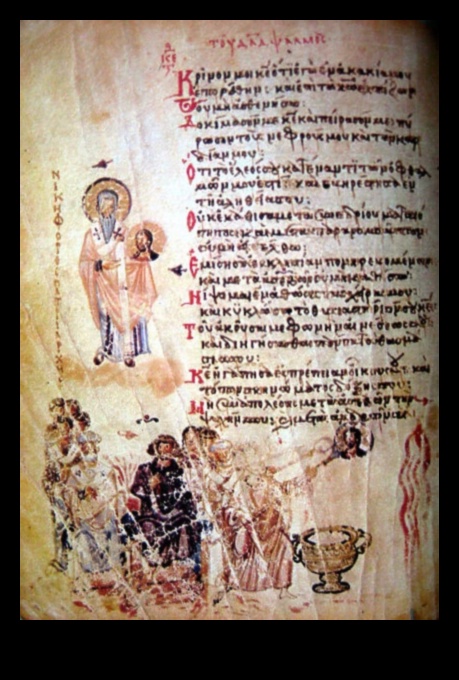 τοῦ δαδ ψαλμός
ΝΙΚΗΦΟΡΟΣ ΠΑΤΡΙΑΡΧΗΣ
Κρῖνόν μοι κε ὅτι ἐγὼ ἐν ἀκακία μου
ἐπορεύθην· καὶ ἐπὶ τῶ κω ἐλπίζων
οὐ μὴ ἀσθενήσω:
Δοκίμασόν με κε καὶ πείρασόν με· πύ
ρωσον τοὺς νεφρούς μου καὶ τὴν καρ
δίαν μου:
Ὅτι τὸ ἔλεός σου κατέναντι τῶν ὀφθαλ
μῶν μου ἐστί· καὶ εὐηρέστησα ἐν
τῆ ἀληθεία σου:
Οὐκ ἐκάθισα μετὰ συνεδρίου ματαιό
τητος καὶ μετὰ παρανομούντων
οὐ μὴ εἰσέλθω:
Ἐμίσησα ἐκκλησίαν πονηρευομένων
καὶ μετὰ ἀσεβῶν οὐ μὴ καθίσω:
Νίψομαι ἐν ἀθώοις τὰς χεῖράς μου:
καὶ κυκλώσω τὸ θυσιαστήριόν σου κε
Τοῦ ἀκοῦσαί με φωνῆς αἰνέσεώς σου
καὶ διηγήσασθαι πάντα τὰ θαυμά
σιά σου:
Κε ἠγάπησα εὐπρέπειαν οἴκου σου· καὶ
τόπον σκηνώματος δόξης σου:
Μὴ συναπολέσης μετὰ ἀσεβῶν τὴν
ψυχήν μου· μετὰ ἀνδρῶν